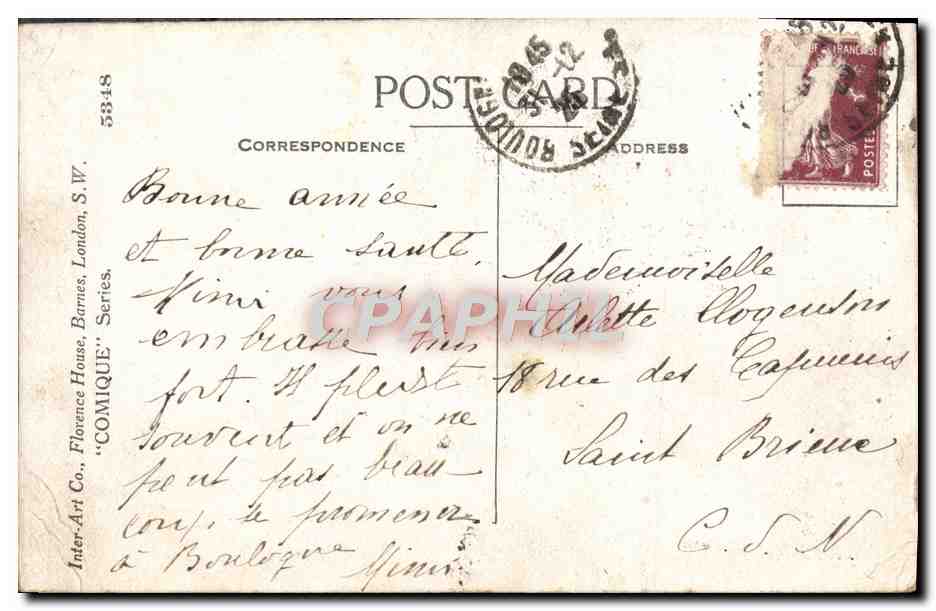 POST CARD
CORRESPONDENCE
ADDRESS
Bonne année
et bonne santé.
Mimi vous
embrasse bien
fort. Il pleut
souvent et on ne
peut pas beau
coup se promener
à Boulogne
Mimi
Mademoiselle
Arlette
18 rue des Capucins
Saint Brieuc
C. d. N.
5348
Inter-Art Co., Florence House, Barnes, London, S.W.
"COMIQUE" Series.
18 45
BOULOGNE
SEINE
FRANÇAISE
POSTES
CPAPHIL